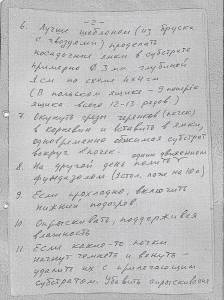 -2-
6. Лучше шаблоном (из бруска
с гвоздями) проделать
посадочные ямки в субстрате
примерно Ø 3 мм глубиной
1 см по схеме 4х4 см
(В польском ящике - 9 поперёк
ящика всего 12-13 рядов)
7. Окунуть срезы черенков (пятек)
в корневин и вставить в ямки,
одновременно обжимая субстрат
вокруг "почек" одним движением
8. На другой день полить
фундазолом (1стол. лож на 10л)
9. Если прохладно, включить
нижний подогрев.
10. Опрыскивать, поддерживая
влажность
11. Если какие-то почки
начнут темнеть и вянуть -
удалить их с прилегающим
субстратом. Убавить опрыскивание